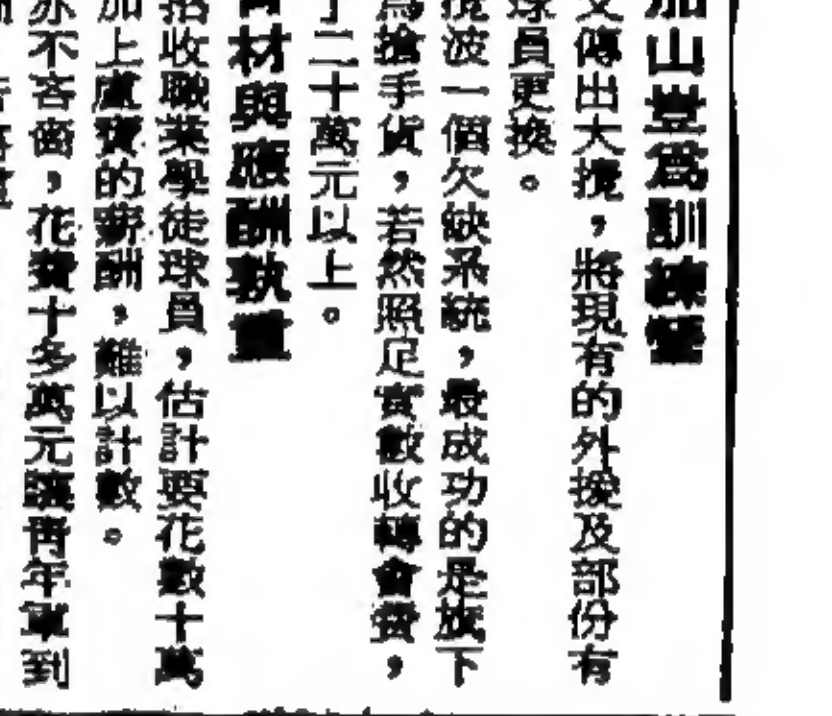 加山豈為訓練營
又傳出大攪，將現有的外援及部份有
球員更換。
攪波一個欠缺系統，最成功的是旗下
為搶手貨，若然照足實數收轉會費，
二十萬元以上。
材與應酬孰重
招收職業學徒球員，估計要花數十萬
加上盧寶的薪酬，難以計數。
亦不吝嗇，花費十多萬元讓青年軍到